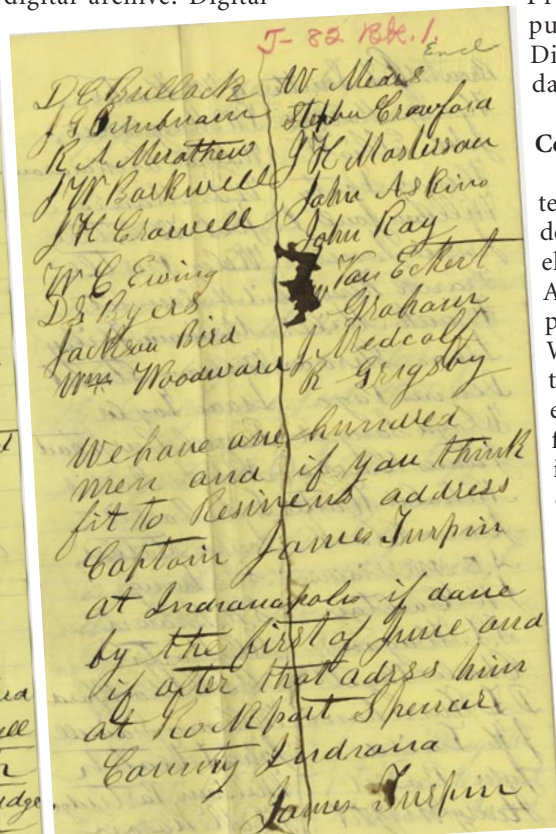 digital archive. Digital
J-82 Bk. 1.
End
D C Bullack
J G Burnbuam
R A Merathew
J W Barkwell
J H Crowell
W C Ewing
D S Byers
Jackson Bird
Wm Woodward
W Medes
Stephen Crawford
J H Masterson
John Askino
John Ray
Van Eckert
Graham
J Medcalf
R Grigsby
We have one hundred
men and if you think
fit to Resive us address
Captain James Turpin
at Indianapolis if done
by the first of June and
if after that adress him
at Rockport Spencer
County Indiana
James Turpin
pu
Di
da
Co
te
de
el
A
p
W
t
e
f
i